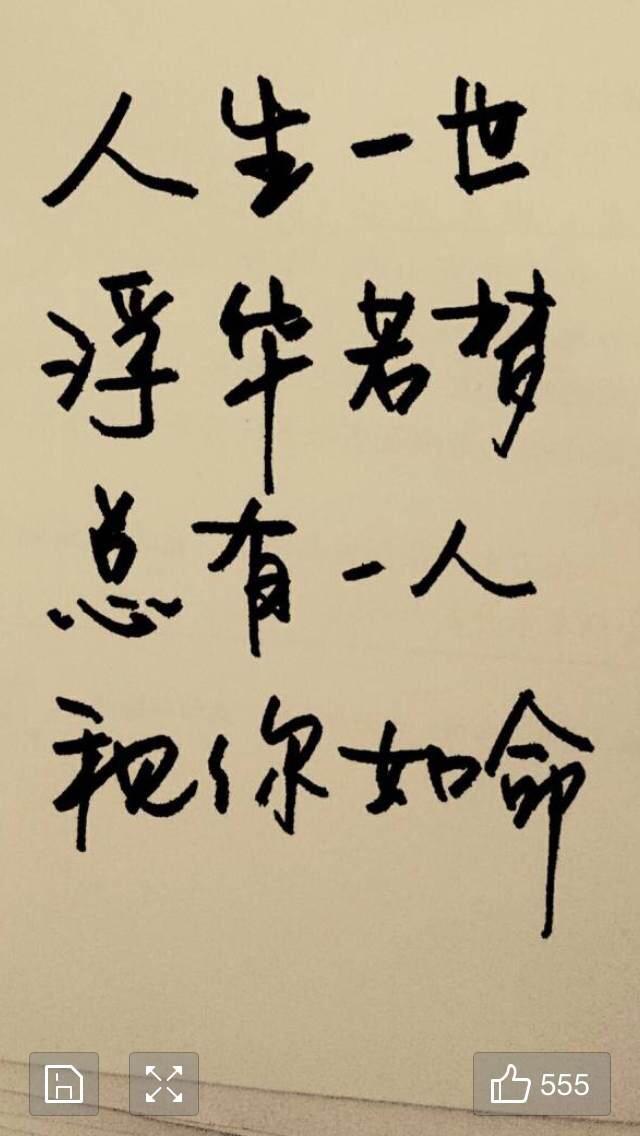 人生一世
浮华若梦
总有一人
视你如命
555